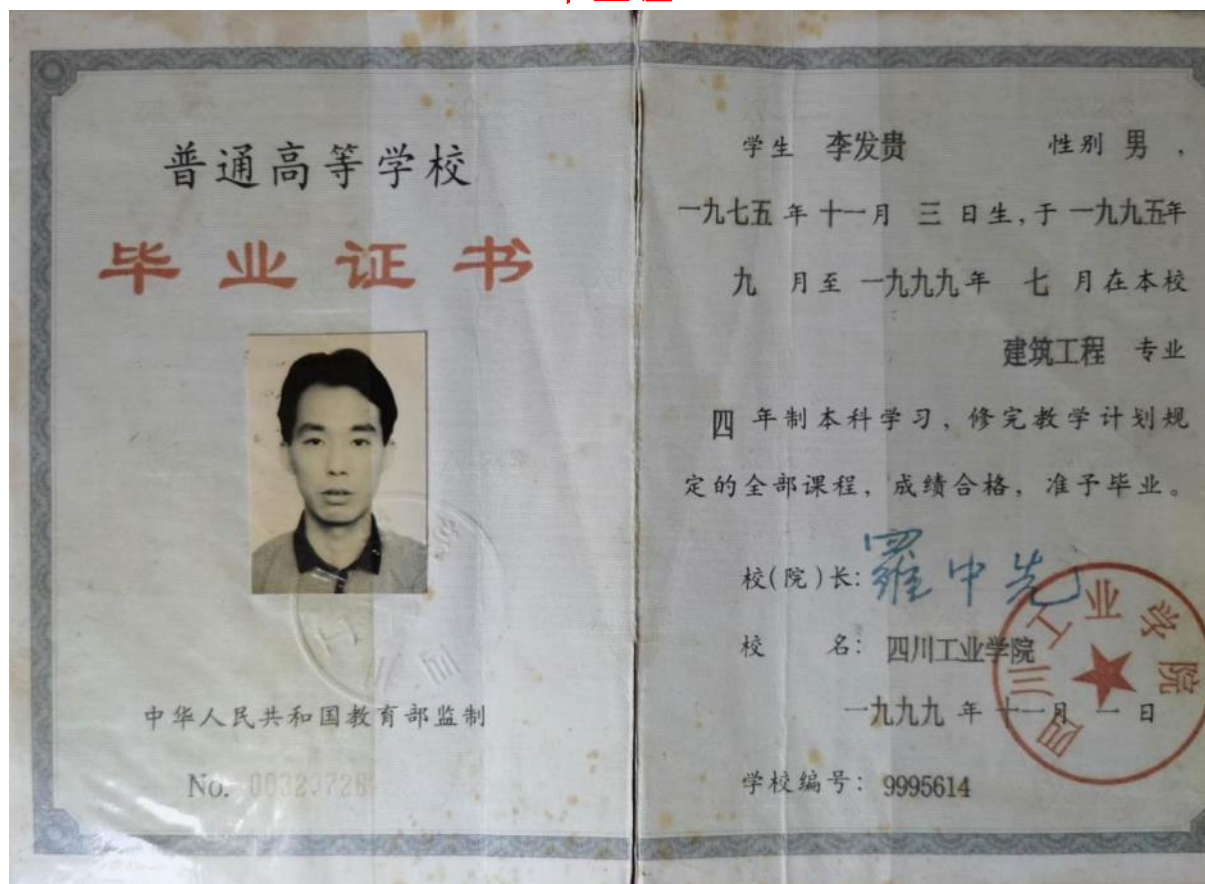 普通高等学校
毕业证书
中华人民共和国教育部监制
No. 00323726
学生 李发贵 性别 男,
一九七五年十一月 三 日生,于一九九五年
九 月至一九九九年 七 月在本校
建筑工程 专业
四 年制本科学习,修完教学计划规
定的全部课程,成绩合格,准予毕业。
校(院)长: 罗中先
校 名: 四川工业学院
一九九九年十一月一日
四川工业学院
学校编号: 9995614